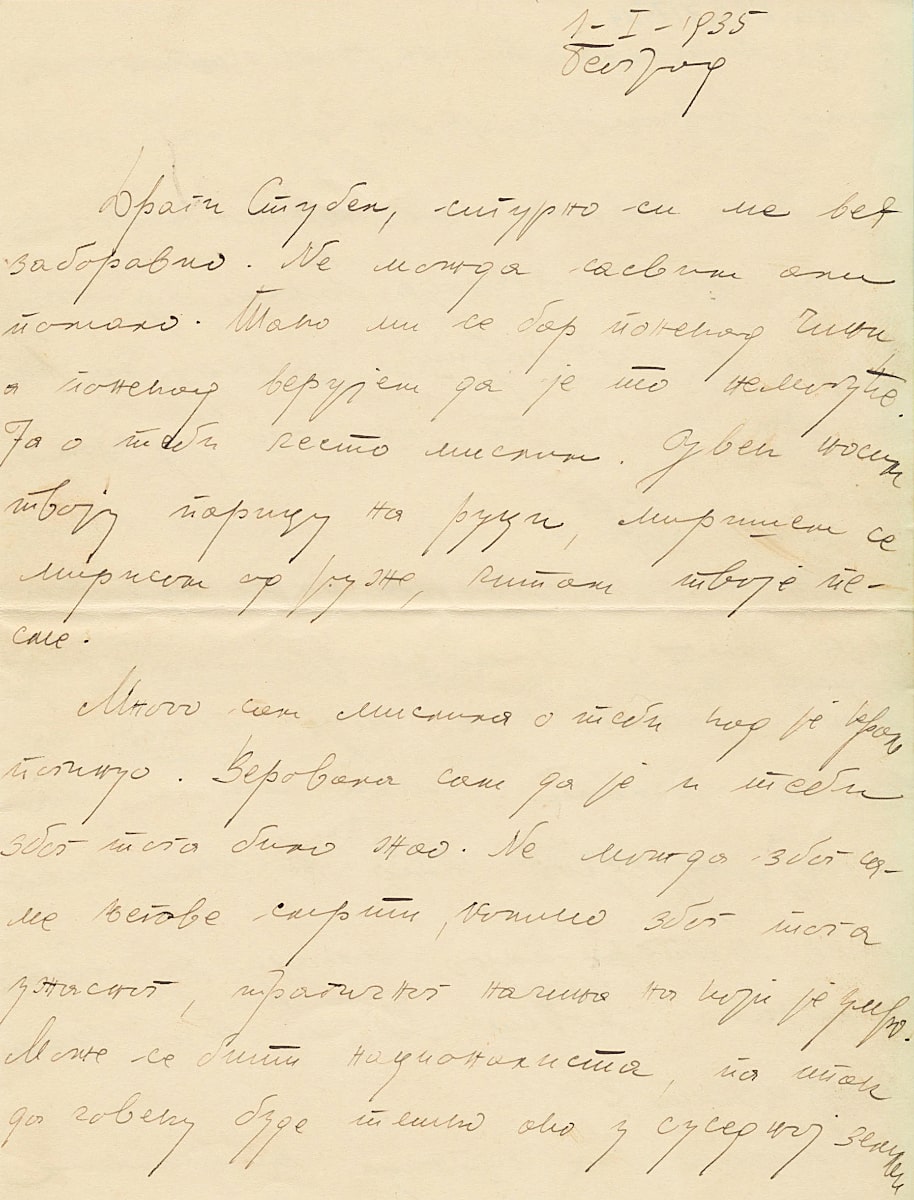 1-I-1935
Београд
Драги Стубек, сигурно си ме већ
заборавио. Не можда сасвим али
помало. Тако ми се бар понекад чини
а понекад верујем да је то немогуће.
Ја о теби често мислим. Увек носим
твоју парицу на руци, миришем се
мирисом од руже, читам твоје пе-
сме.
Много сам мислила о теби кад је краљ
погинуо. Веровала сам да је и теби
због тога било жао. Не можда због са-
ме његове смрти, колико због тога
ужасног, трагичног начина на који је умро.
Може се бити националиста, па ипак
да човеку буде тешко ако у суседној земљи